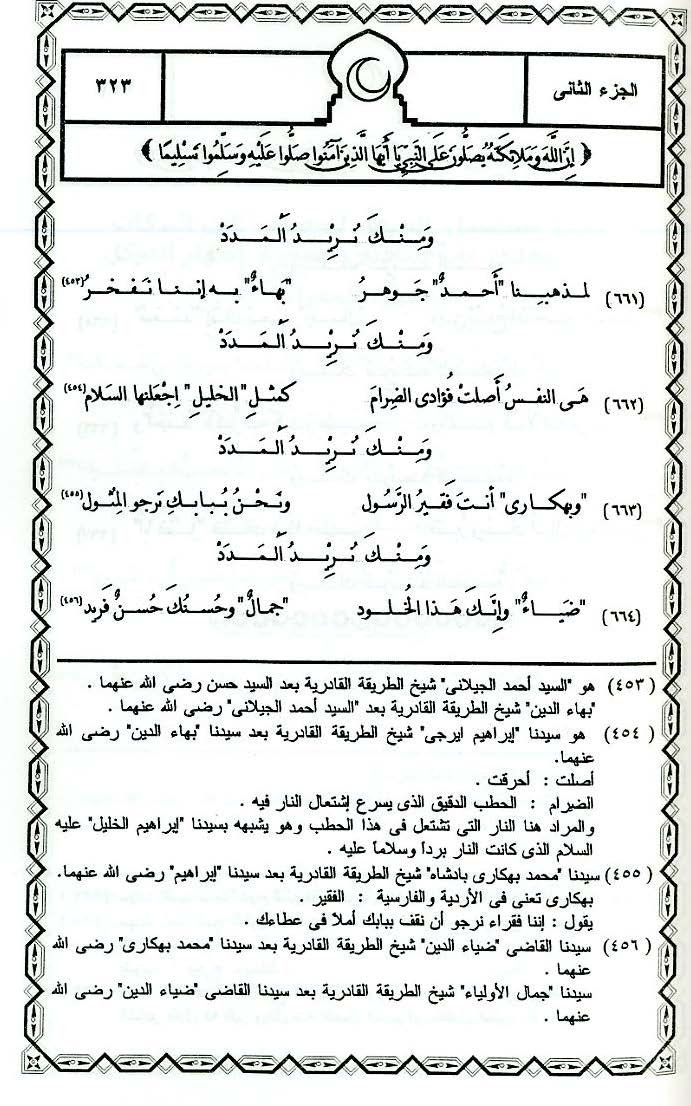 الجزء الثانى
٣٢٣
﴿ إِنَّ اللَّهَ وَمَلَائِكَتَهُ يُصَلُّونَ عَلَى النَّبِيِّ يَا أَيُّهَا الَّذِينَ آمَنُوا صَلُّوا عَلَيْهِ وَسَلِّمُوا تَسْلِيمًا ﴾
وَمِنْكَ نُرِيْدُ الْمَدَدْ
(٦٦١) لمذهبينا "أَحمدٌ" جَوهرُ "بَهاءٌ" به إننا نَفْخرُ (٤٥٣)
وَمِنْكَ نُرِيْدُ الْمَدَدْ
(٦٦٢) هَى النفسُ أَصلتْ فُؤادى الضِرامَ كمثلِ "الخليلِ" اِجْعَلنها السَلام (٤٥٤)
وَمِنْكَ نُرِيْدُ الْمَدَدْ
(٦٦٣) "وبهكارى" أنتَ فَقيرُ الرَّسول ونَحْنُ بُبابكِ نَرجو المثُول (٤٥٥)
وَمِنْكَ نُرِيْدُ الْمَدَدْ
(٦٦٤) "ضيَاءٌ" وإنَّكَ هَذا الخُلود "جمالٌ" وحُسنُكَ حُسنٌ فَريد (٤٥٦)
(٤٥٣) هو "السيد أحمد الجيلانى" شيخ الطريقة القادرية بعد السيد حسن رضى الله عنهما .
"بهاء الدين" شيخ الطريقة القادرية بعد "السيد أحمد الجيلانى" رضى الله عنهما .
(٤٥٤) هو سيدنا "إبراهيم ايرجى" شيخ الطريقة القادرية بعد سيدنا "بهاء الدين" رضى الله
عنهما.
أصلت : أحرقت .
الضيرام : الحطب الدقيق الذى يسرع إشتعال النار فيه .
والمراد هنا النار التى تشتعل فى هذا الحطب وهو يشبهه بسيدنا "إبراهيم الخليل" عليه
السلام الذى كانت النار برداً وسلاماً عليه .
(٤٥٥) سيدنا "محمد بهكارى بادشاه" شيخ الطريقة القادرية بعد سيدنا "إبراهيم" رضى الله عنهما.
بهكارى تعنى فى الأردية والفارسية : الفقير .
يقول : إننا فقراء نرجو أن نقف ببابك أملا فى عطاءك .
(٤٥٦) سيدنا القاضى "ضياء الدين" شيخ الطريقة القادرية بعد سيدنا "محمد بهكارى" رضى الله
عنهما .
سيدنا "جمال الأولياء" شيخ الطريقة القادرية بعد سيدنا القاضى "ضياء الدين" رضى الله
عنهما .